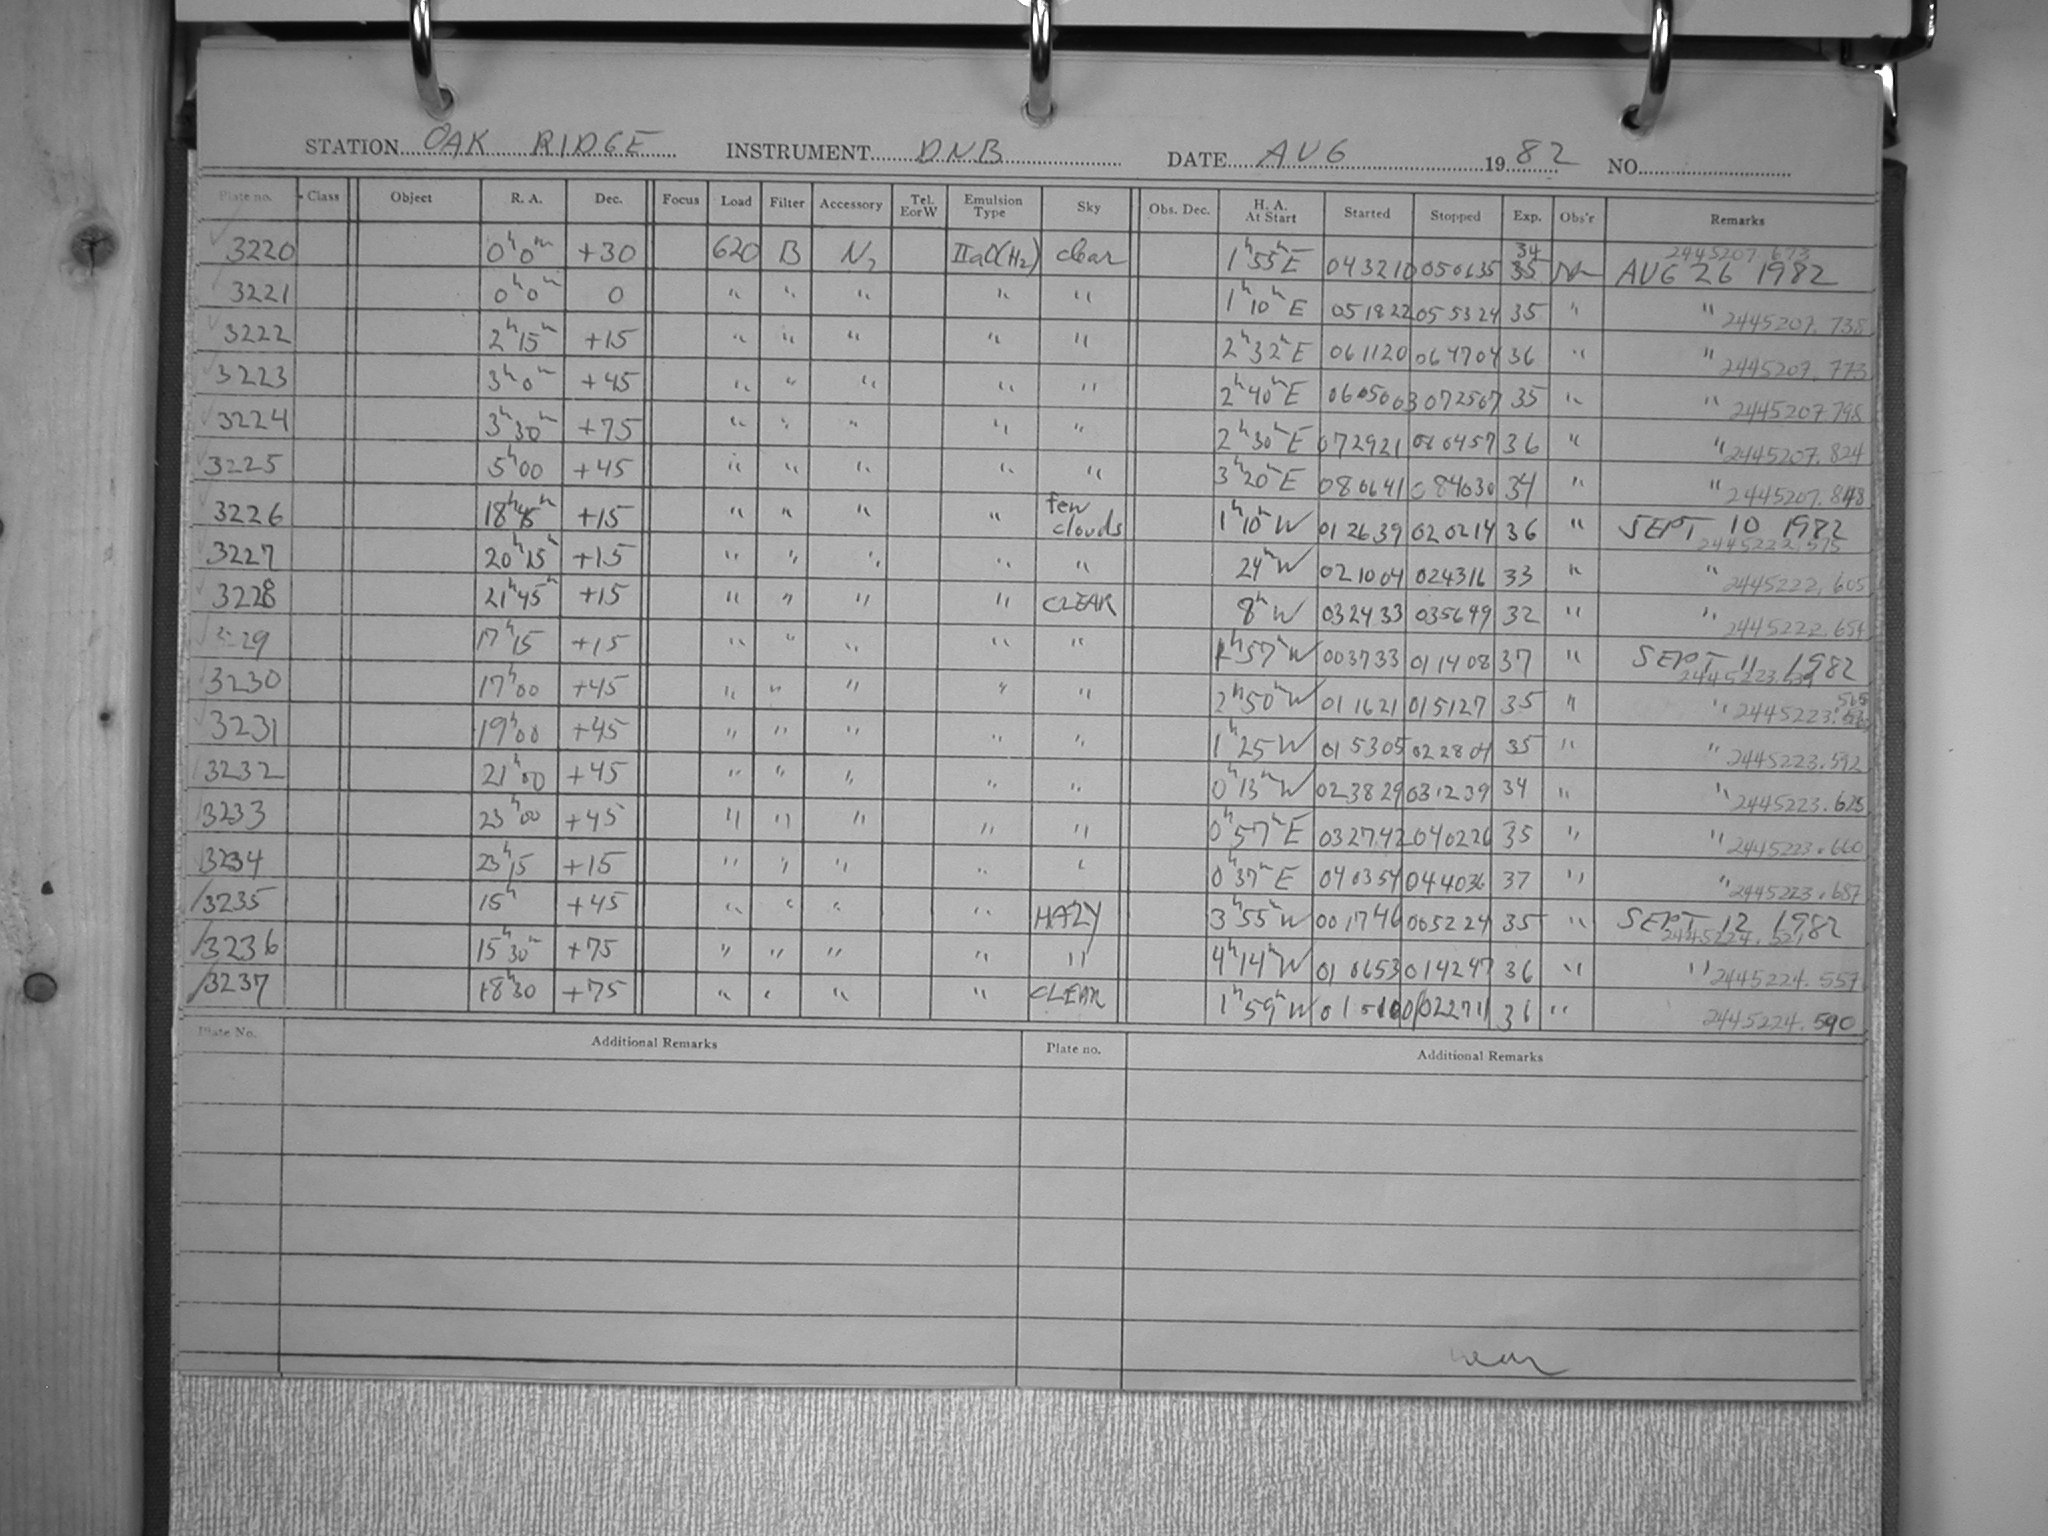 STATION OAK RIDGE INSTRUMENT DNB DATE AUG 1982 NO.
Plate no. Class Object R. A. Dec. Focus Load Filter Accessory Tel. E or W Emulsion Type Sky Obs. Dec. H. A. At Start Started Stopped Exp. Obs'r Remarks
3220 0h 0m +30 620 B N2 IIaO(H2) clear 1h 55m E 043210 050635 34 35 2445207.673 AUG 26 1982
3221 0h 0m 0 " " " " " 1h 10m E 051822 055324 35 " " 2445207.738
3222 2h 15m +15 " " " " " 2h 32m E 061120 064704 36 " " 2445207.773
3223 3h 0m +45 " " " " " 2h 40m E 072507 35 " " 2445207.798
3224 3h 30m +75 " " " " " 2h 30m E 072921 080457 36 " " 2445207.824
3225 5h 00 +45 " " " " " 3h 20m E 080641 084030 34 " " 2445207.848
3226 18h 45m +15 " " " " few clouds 1h 10m W 012639 020214 36 " SEPT 10 1982 2445222.575
3227 20h 15m +15 " " " " " 24m W 021004 024316 33 " " 2445222.605
3228 21h 45m +15 " " " " CLEAR 8m W 032433 035649 32 " " 2445222.654
3229 17h 15 +15 " " " " " 1h 57m W 003733 011408 37 " SEPT 11 1982
3230 17h 00 +45 " " " " " 2h 50m W 011621 015127 35 " " 2445223.565
3231 19h 00 +45 " " " " " 1h 25 W 015305 022804 35 " " 2445223.592
3232 21h 00 +45 " " " " " 0h 13m W 023829 031239 34 " " 2445223.623
3233 23h 00 +45 " " " " " 0h 57m E 032742 040226 35 " " 2445223.660
3234 23h 15 +15 " " " " " 0h 37m E 040354 044036 37 " " 2445223.687
3235 15h +45 " " " " HAZY 3h 55m W 001746 005224 35 " SEPT 12 1982 2445224.521
3236 15h 30m +75 " " " " " 4h 14m W 010653 014247 36 " " 2445224.557
3237 18h 30 +75 " " " " CLEAR 1h 59m W 36 " 2445224.590
Plate No. Additional Remarks Plate no. Additional Remarks